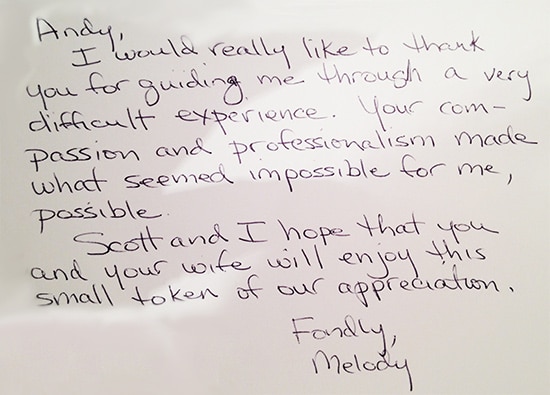 Andy,
I would really like to thank
you for guiding me through a very
difficult experience. Your com-
passion and professionalism made
what seemed impossible for me,
possible.
Scott and I hope that you
and your wife will enjoy this
small token of our appreciation.
Fondly,
Melody